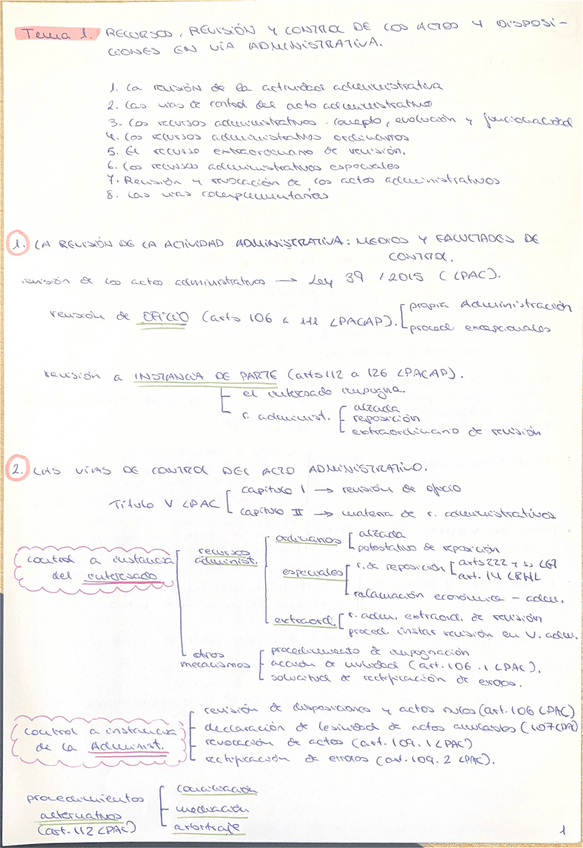 Tema 1. RECURSOS, REVISIÓN Y CONTROL DE LOS ACTOS Y DISPOSI-
CIONES EN VÍA ADMINISTRATIVA.
1. La revisión de la actividad administrativa
2. Las vías de control del acto administrativo
3. Los recursos administrativos. concepto, evolución y funcionalidad
4. Los recursos administrativos ordinarios
5. El recurso extraordinario de revisión.
6. Los recursos administrativos especiales
7. Revisión y revocación de los actos administrativos
8. Las vías complementarias
1. LA REVISIÓN DE LA ACTIVIDAD ADMINISTRATIVA: MEDIOS Y FACULTADES DE
CONTROL.
revisión de los actos administrativos → Ley 39/2015 (LPAC).
revisión de OFICIO (arts 106 a 111 LPACAP).
propia Administración
proced. excepcionales
revisión a INSTANCIA DE PARTE (arts 112 a 126 LPACAP).
el interesado impugna.
r. administ.
alzada
reposición
extraordinario de revisión
2. LAS VÍAS DE CONTROL DEL ACTO ADMINISTRATIVO.
Título V LPAC
capítulo I → revisión de oficio
capítulo II → materia de r. administrativos
control a instancia
del interesado
recursos
administ.
ordinarios
alzada
potestativo de reposición
especiales
r. de reposición
arts 222 y ss LGT
art. 14 LRHL
reclamación económica - adm.
extraord.
r. adm. extraord. de revisión
proced. instar revisión en V. adm.
otros
mecanismos
procedimiento de impugnación
acción de nulidad (art. 106.1 LPAC).
solicitud de rectificación de errores.
control a instancia
de la Administ.
revisión de disposiciones y actos nulos (art. 106 LPAC)
declaración de lesividad de actos anulables (107 LPAC)
revocación de actos (art. 109.1 LPAC)
rectificación de errores (art. 109.2 LPAC).
procedimientos
alternativos
(art. 112 LPAC)
conciliación
mediación
arbitraje
1